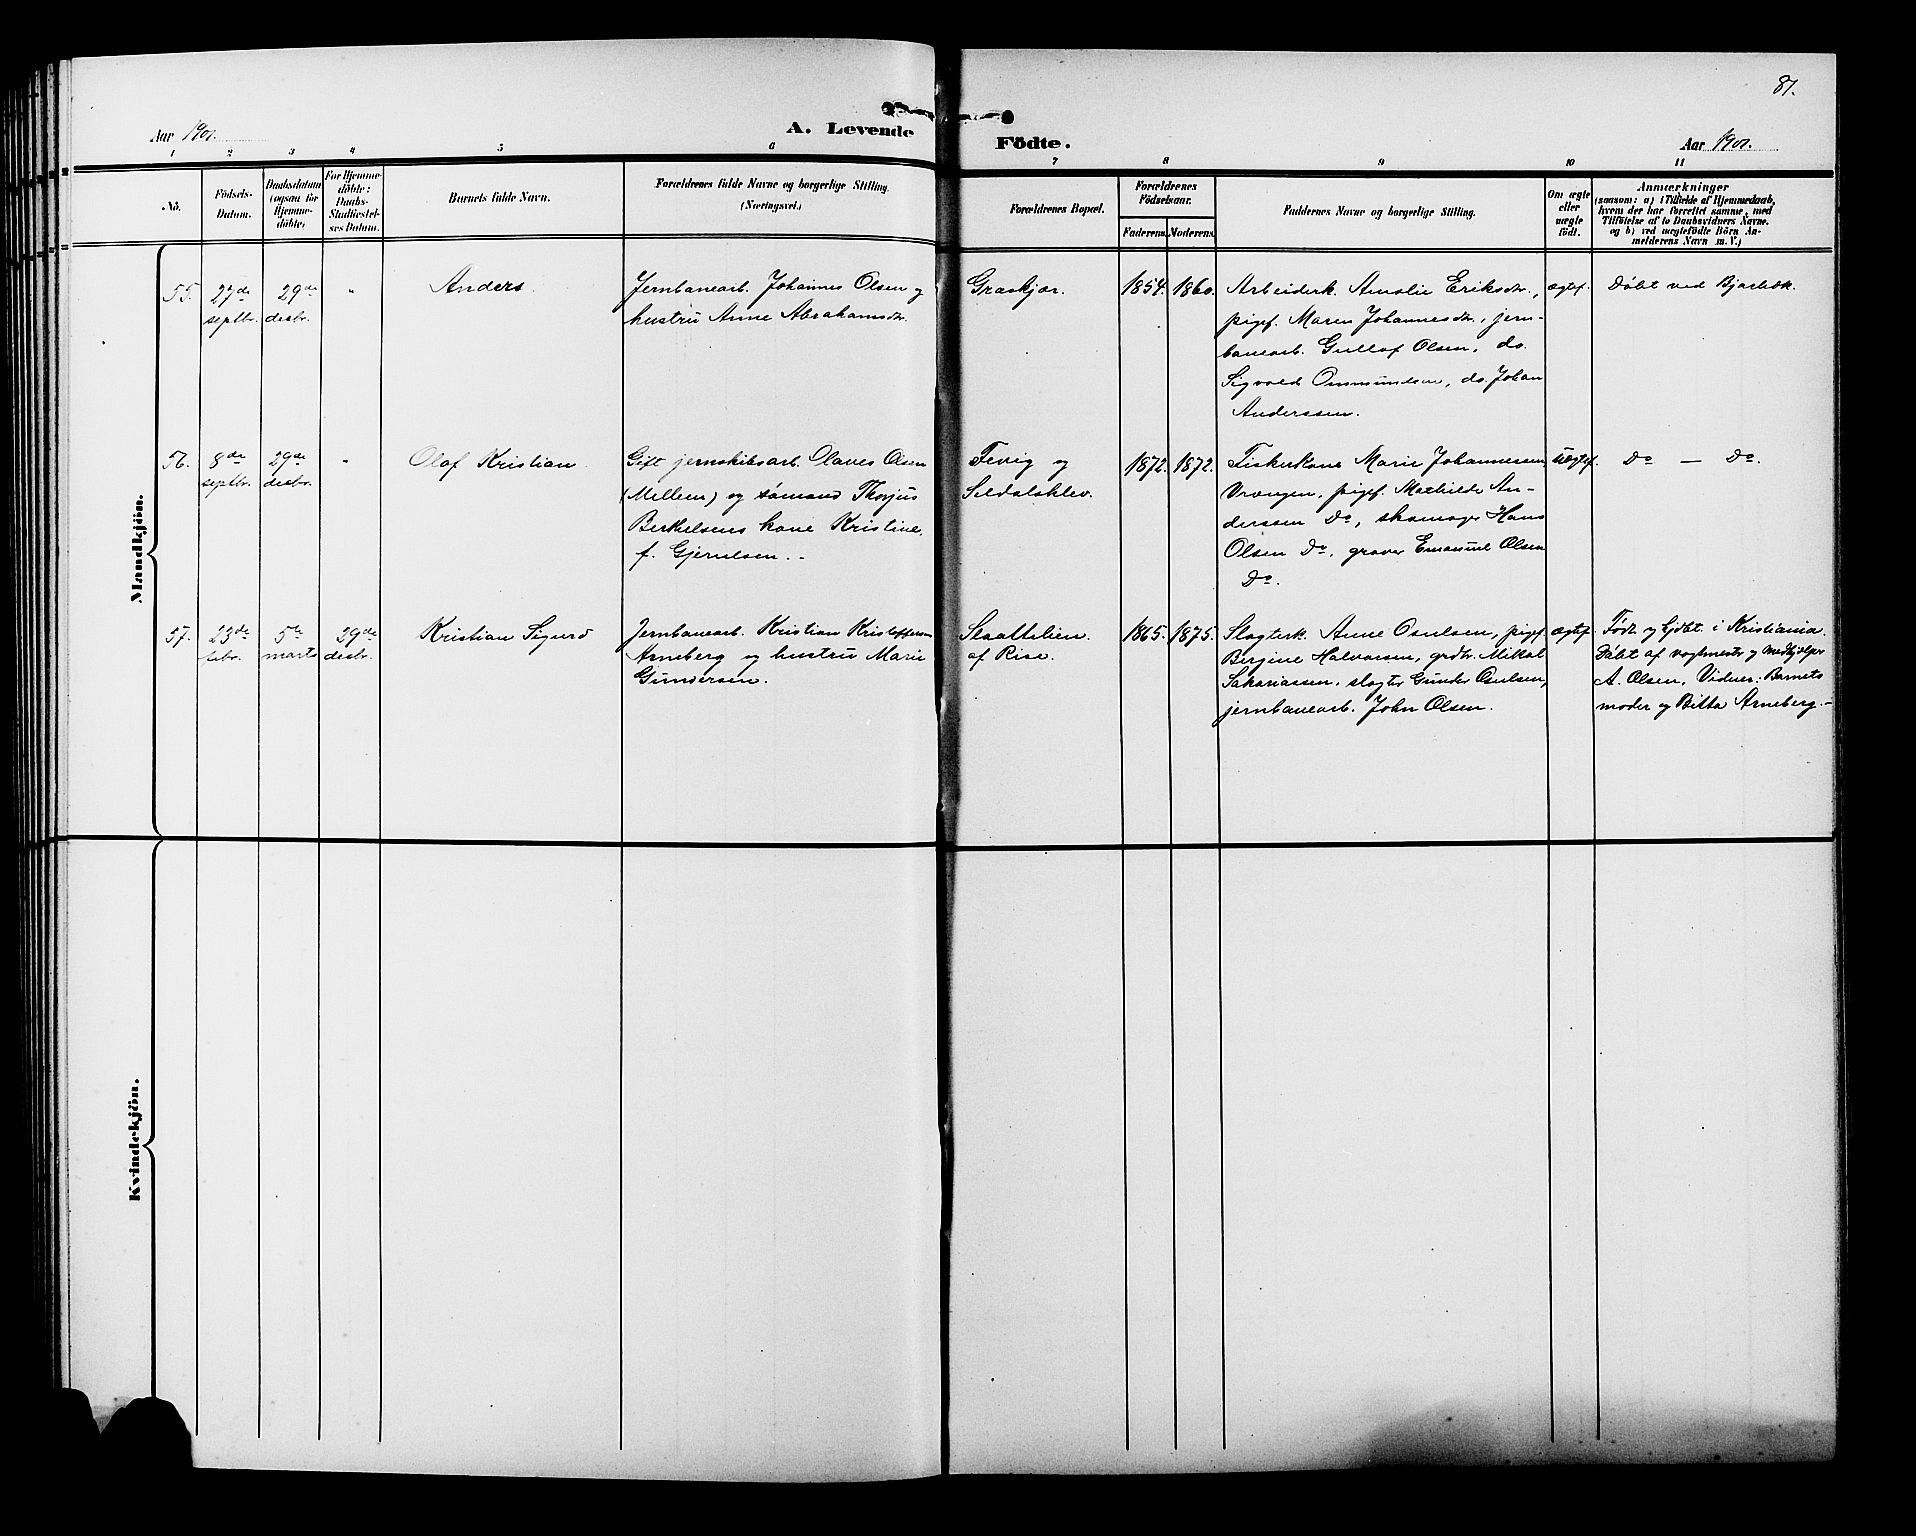 81.
Aar 1901.
A. Levende Födte.
Aar 1901.
1 2 3 4 5 6 7 8 9 10 11
No.
Födsels-
Datum.
Daabsdatum
(ogsaa for
Hjemme-
döbte)
For Hjemme-
döbte:
Daabs-
Stadfæstel-
ses Datum.
Barnets fulde Navn.
Forældrenes fulde Navne og borgerlige Stilling.
(Næringsvei.)
Forældrenes Bopæl.
Forældrenes
Födselsaar.
Faderens. Moderens.
Faddernes Navne og borgerlige Stilling.
Om ægte
eller
uægte
födt.
Anmærkninger
(saasom: a) i Tilfælde af Hjemmedaab,
hvem der har forrettet samme, med
Tilföielse af to Daabsvidners Navne.
og b) ved uægtefödte Börn An-
melderens Navn m. V.)
Mandkjön.
55.
27de
septbr.
29de
desbr.
"
Anders.
Jernbanearb. Johannes Olsen og
hustru Anne Abrahamsdtr.
Graskjær.
1854. 1860.
Arbeiderk. Amalie Eriksdtr.,
pigef. Maren Johannesdtr., jern-
banearb. Gullaf Olsen, do.
Sigvald Ommundsen, do. Johan
Anderssen.
ægtef.
Døbt ved Bjorbæk.
56.
8de
septbr.
29de
desbr.
"
Olaf Kristian.
Gift jernskibsarb. Olaves Olsen
(Mellem) og sømand Thorjus
Berthelsens kone Kristine,
f. Gjerulsen. -
Fevig og
Sildalsklev.
1872. 1872.
Fiskerkone Marie Johannessen,
Vrengen, pigef. Mathilde An-
derssen Do, skomager Hans
Olsen Do, graver Emanuel Olsen
Do.
uægtef.
Do — Do.
57.
23de
febr.
5te
marts
29de
desbr.
Kristian Sigurd
Jernbanearb. Kristian Kristoffersen
Arneberg og hustru Marie
Gundersen.
Slaattelien
af Rise.
1865. 1875.
Slagterk. Anne Osulsen, pigef.
Bergine Halvorsen, grdbr. Mikal
Sakariassen, slagter Gunder Osulsen,
jernbanearb. John Olsen.
ægtef.
Født og hjdbt. i Kristiania.
Døbt af vagtmester og medhjælper
A. Olsen, Vidner: Barnets
moder og Bitta Arneberg. -
Kvindekjön.